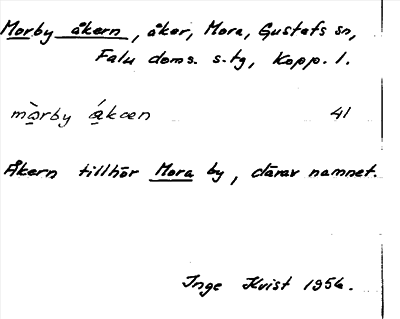 Morby åkern, åker, Mora, Gustafs sn,
Falu doms. s-tg, Kopp. l.
mo̱rby a̱kæn 41
Åkern tillhör Mora by, därav namnet.
Inge Kvist 1956.